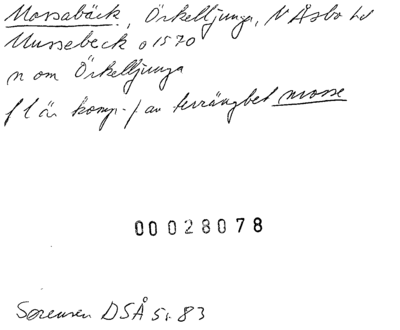 Mossabäck, Örkelljunga, N Åsbo hd
Mussebeck o 1570
n om Örkelljunga
f l är komp.-f av terrängbet mosse
00028078
Sørensen DSÅ s. 83